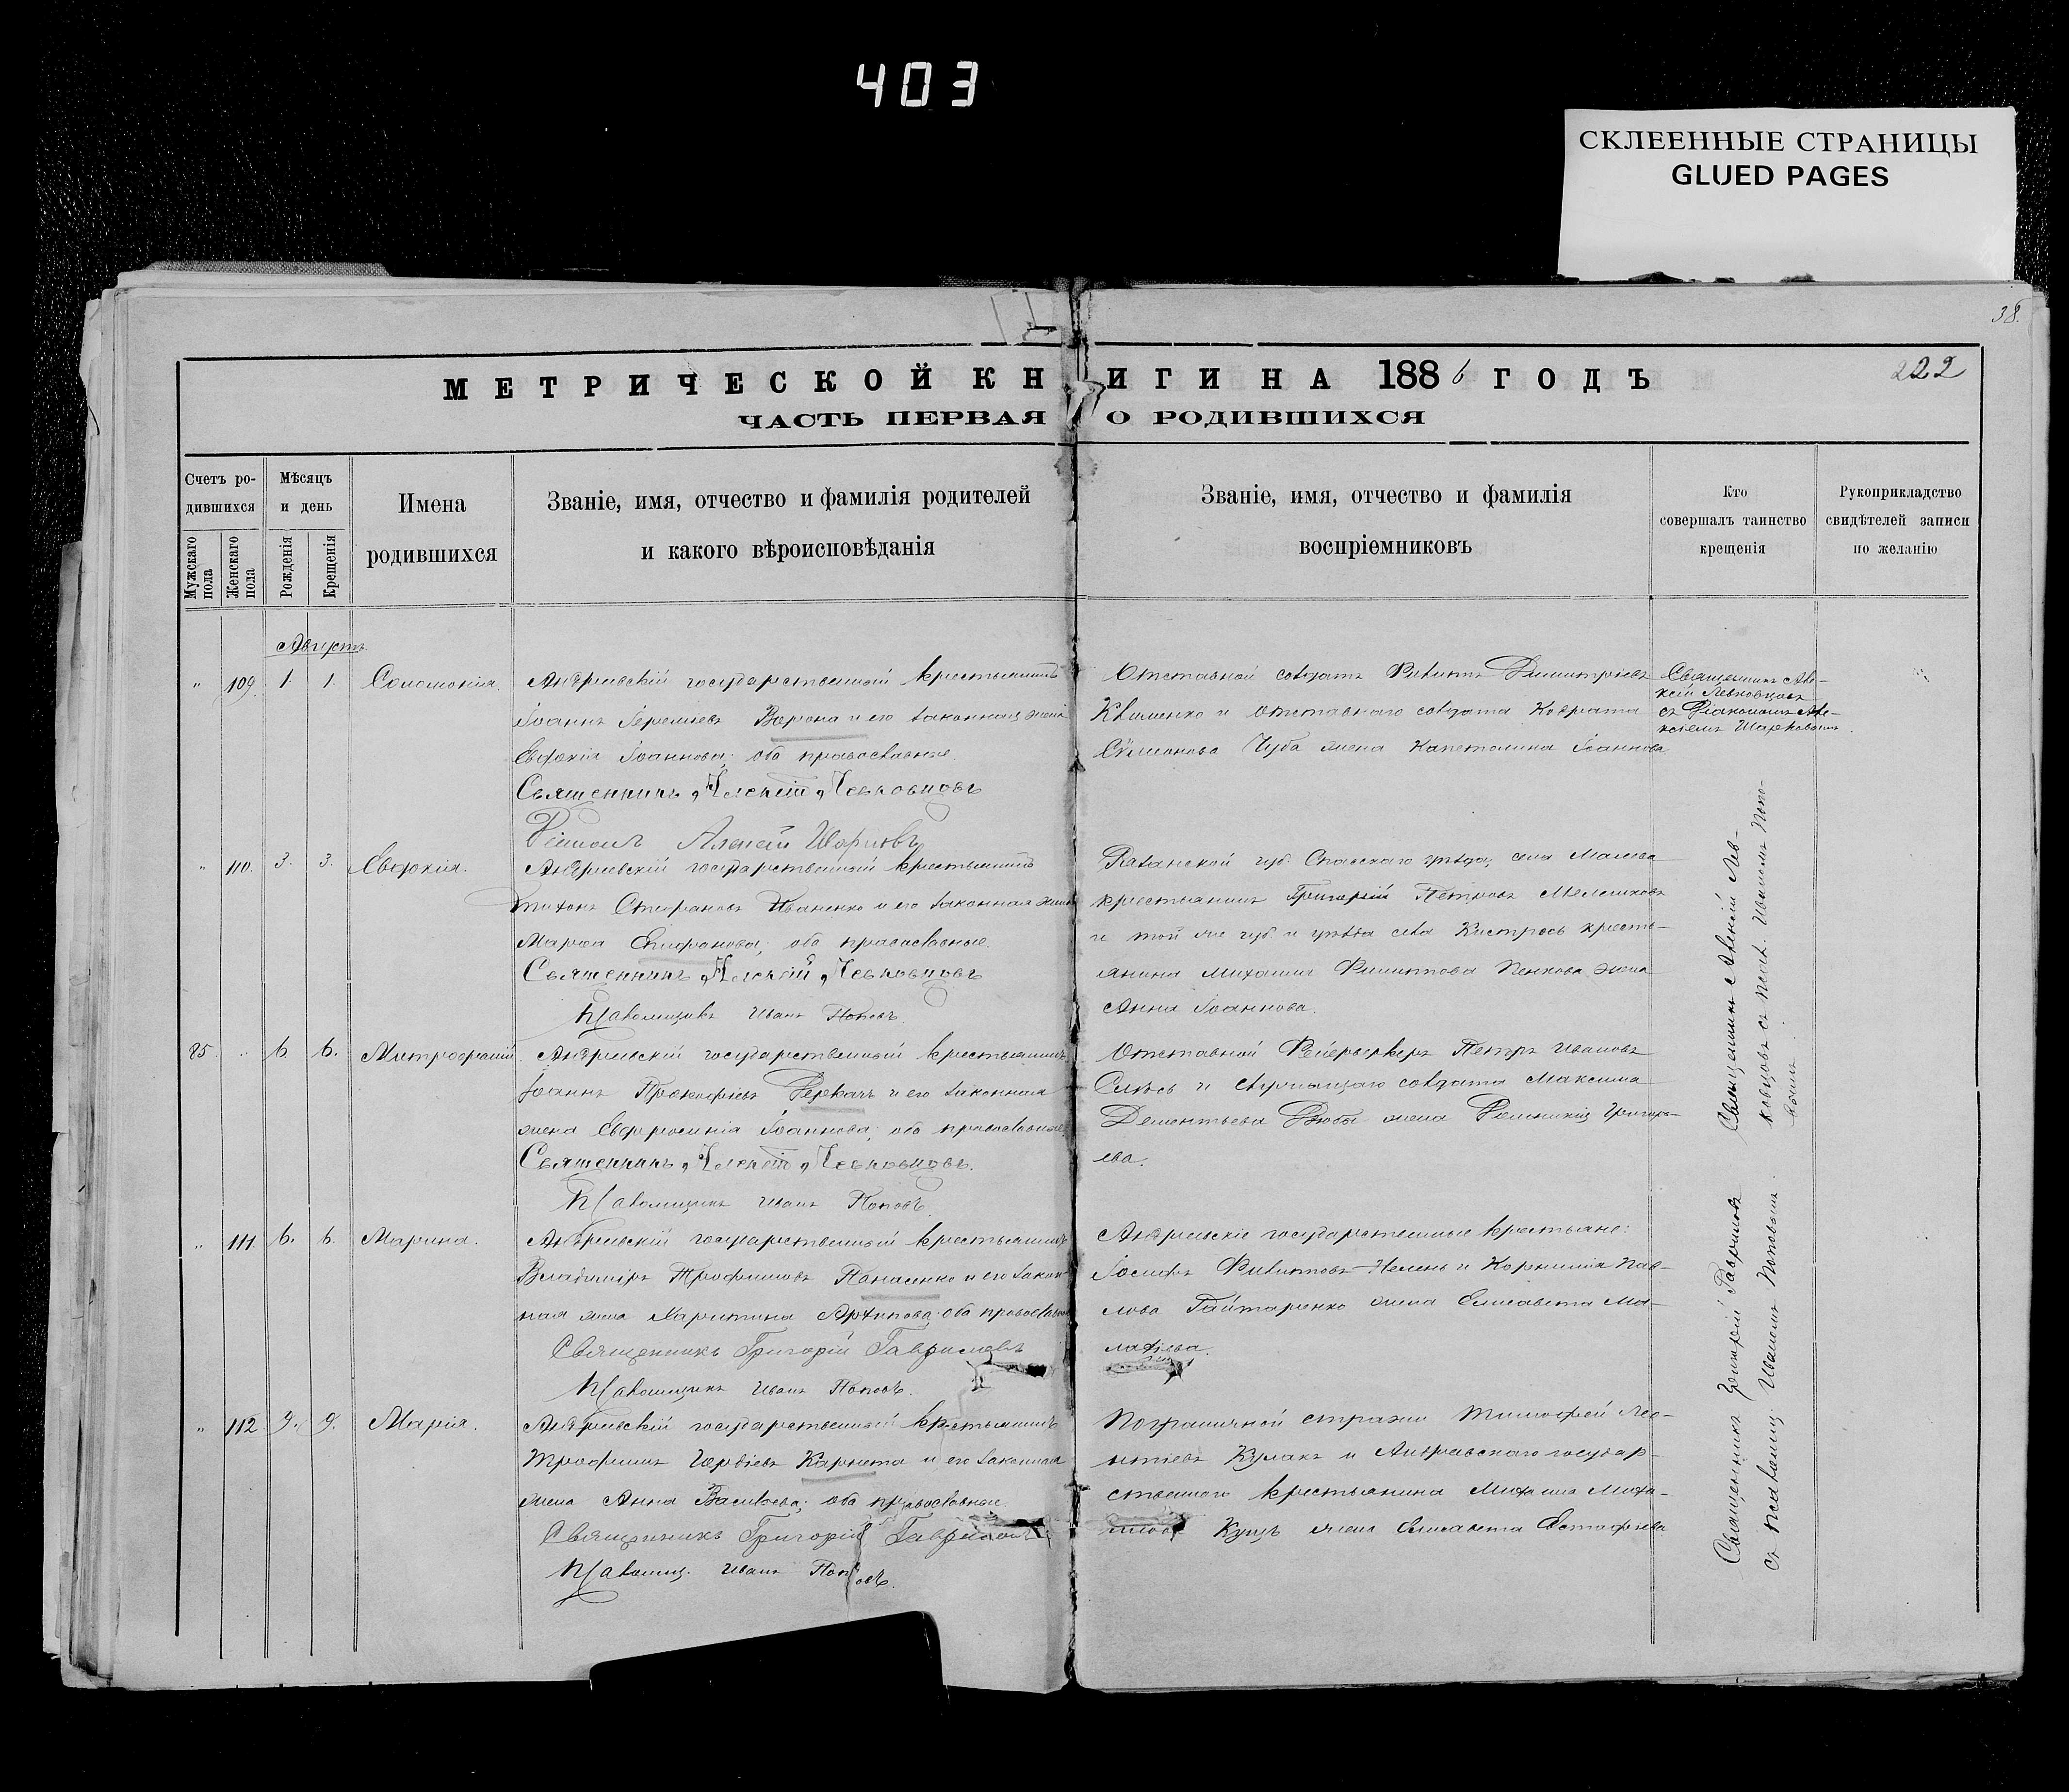 403
СКЛЕЕННЫЕ СТРАНИЦЫ
GLUED PAGES
38.
МЕТРИЧЕСКОЙ КНИГИ НА 1886 ГОДЪ
222
ЧАСТЬ ПЕРВАЯ О РОДИВШИХСЯ
Счетъ ро-
дившихся
Мужскаго пола
Женскаго пола
Мѣсяцъ
и день
Рожденія
Крещенія
Имена
родившихся
Званіе, имя, отчество и фамилія родителей
и какого вѣроисповѣданія
Званіе, имя, отчество и фамилія
воспріемниковъ
Кто
совершалъ таинство
крещенія
Рукоприкладство
свидѣтелей записи
по желанію
Августъ
" 109. 1. 1. Соломонія.
Андреевскій государственный крестьянинъ
Іоаннъ Іереміевъ Ворона и его законная жена
Евдокія Іоаннова; оба православные.
Священникъ Алексій Левковцовъ
Діаконъ Алексѣй
Отставной солдатъ Филиппъ Димитріевъ
и отставнаго солдата
Чуба жена Капетолина Іоаннова
Священникъ Але-
ксій Левковцовъ
съ Діакономъ Але-
ксіемъ
" 110. 3. 3. Евдокія.
Андреевскій государственный крестьянинъ
Тихонъ Стефановъ Иваненко и его законная жена
Марфа Епифанова; оба православные.
Священникъ Алексій Левковцовъ
Псаломщикъ Иванъ Поповъ.
Рязанской губ. Спасскаго уѣзда, села
крестьянинъ Григорій Петровъ
и той же губ. и уѣзда села Кистрось кресть-
янина Михаила Филиппова Пенкова жена
Анна Іоаннова.
Священникъ Алексій Лев-
ковцовъ съ псал. Иваномъ Попо-
вымъ.
85. " 6. 6. Митрофаній.
Андреевскій государственный крестьянинъ
Іоаннъ Прокофіевъ Деркачъ и его законная
жена Евфросинія Іоаннова; оба православные.
Священникъ Алексій Левковцовъ.
Псаломщикъ Иванъ Поповъ.
Отставной Фейерверкеръ Петръ Ивановъ
и служащаго солдата Максима
Дементьева жена Домникія Григорь-
ева.
" 111. 6. 6. Марина.
Андреевскій государственный крестьянинъ
Владиміръ Трофимовъ Панасенко и его закон-
ная жена Харитина Архипова; оба православные
Священникъ Григорій Гавриловъ
Псаломщикъ Иванъ Поповъ.
Андреевскіе государственные крестьяне:
Іосифъ Филипповъ и Корнилія Пав-
лова Гайтаренко жена Елисавета Ма-
лахіева.
Священникъ Григорій Гавриловъ
съ псаломщ. Иваномъ Поповымъ.
" 112. 9. 9. Марія.
Андреевскій государственный крестьянинъ
Трофимъ Карнета и его законная
жена Анна Васильева; оба православные.
Священникъ Григорій Гавриловъ
Псаломщ. Иванъ Поповъ.
Пограничной стражи Тимофей Лео-
нтіевъ Кулакъ и Андреевскаго государ-
ственнаго крестьянина Михаила Миха-
илова Куцъ жена Елисавета Евстафьева